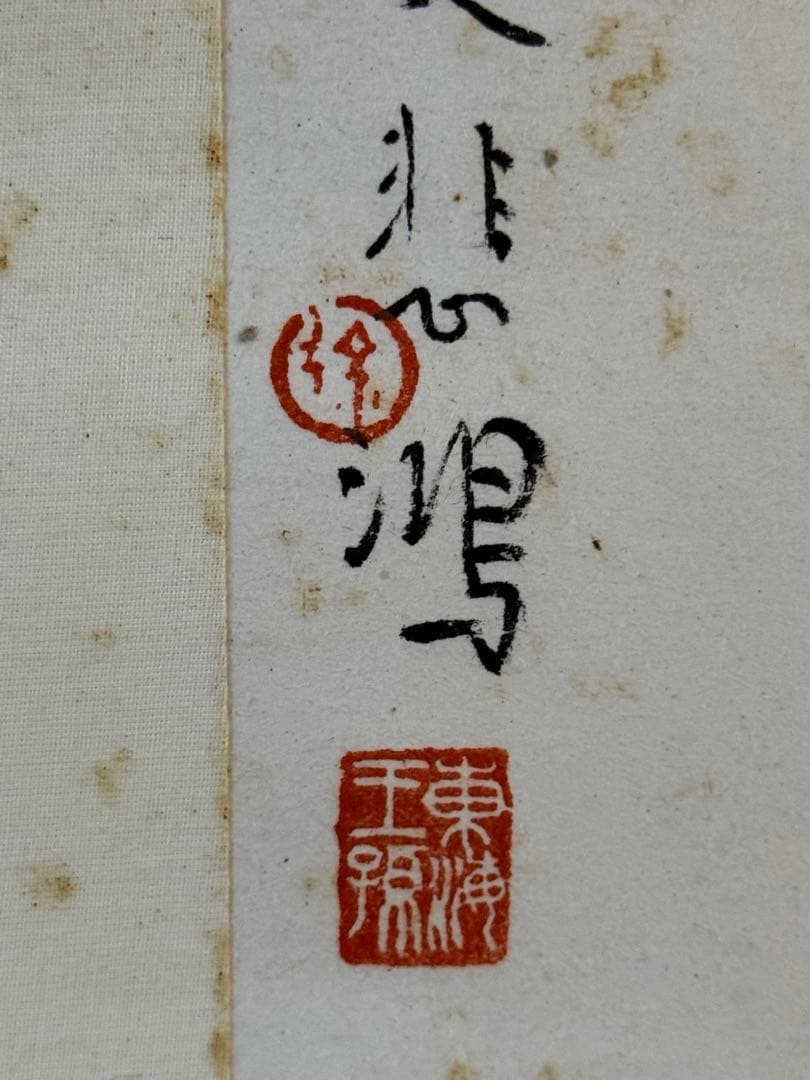 悲鴻
徐
東海王孫